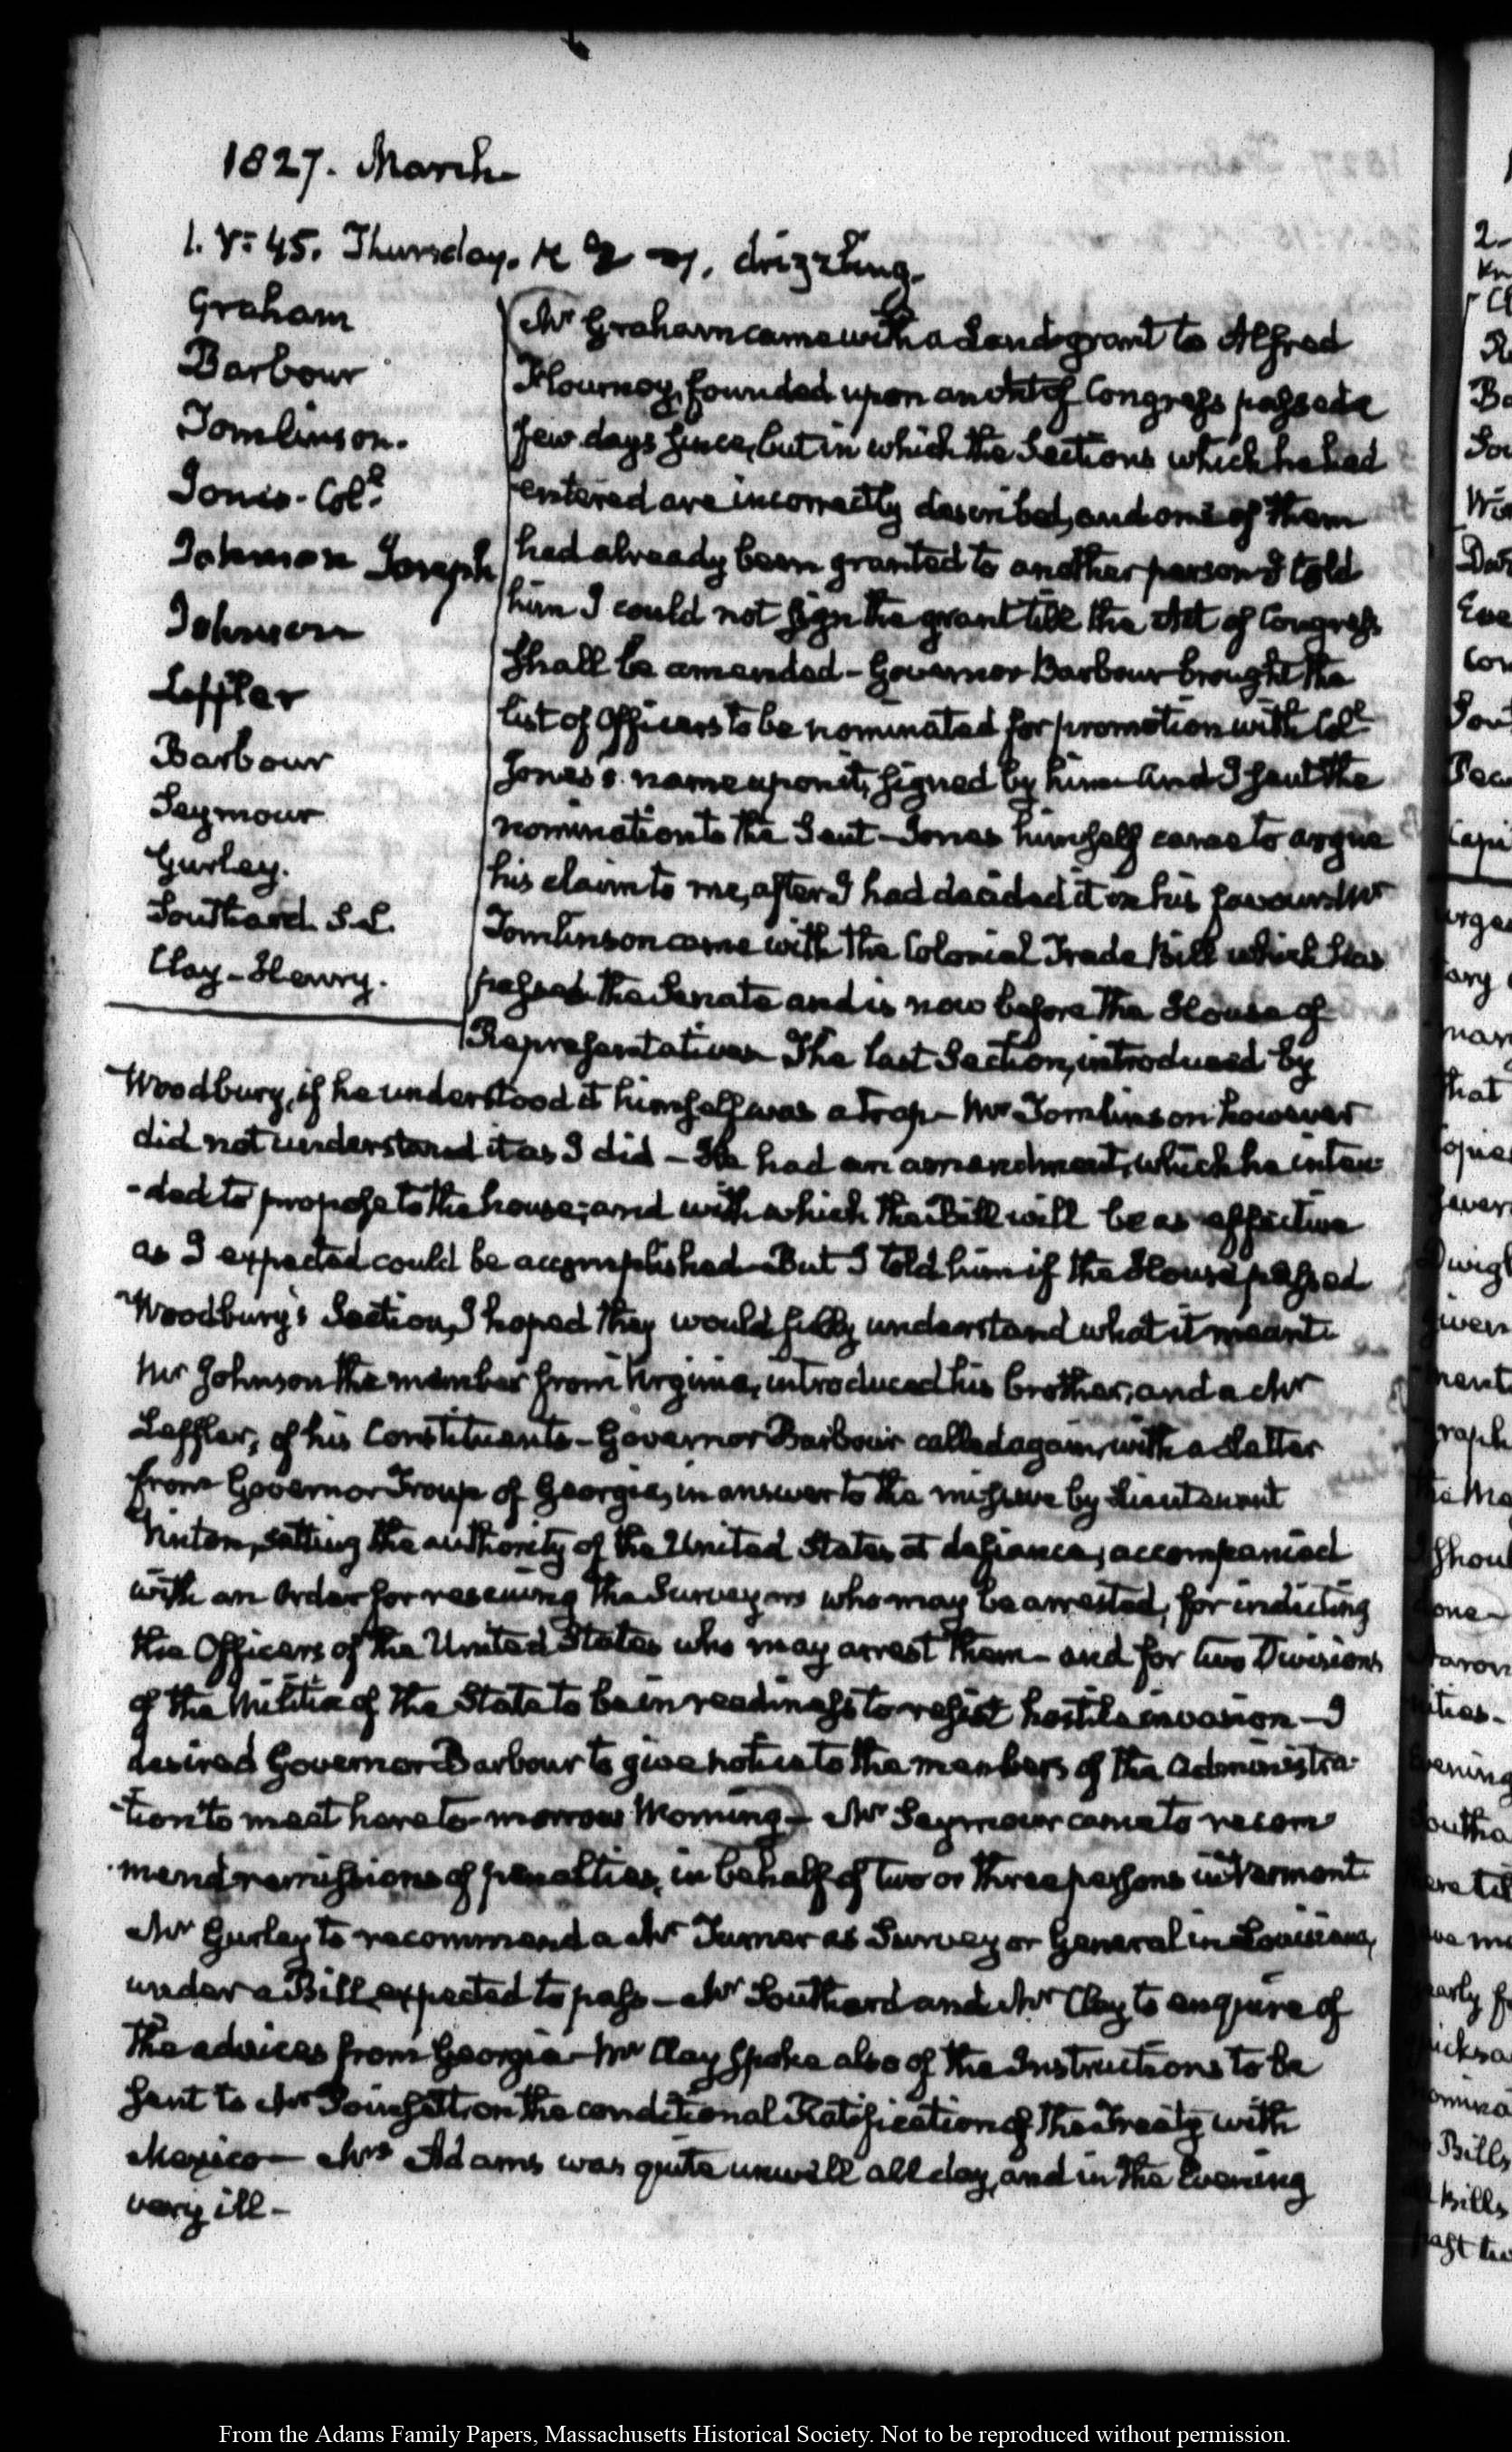 1827. March
1. V: 45. Thursday. drizzling.
Graham
Barbour
Tomlinson.
Jones - Coll.
Johnson Joseph
Johnson
Leffler
Barbour
Seymour
Gurley.
Southard. S.L.
Clay - Henry.
Mr Graham came with a Land grant to Alfred
Flournoy, founded upon an Act of Congress passed a
few days since, but in which the Sections which he had
entered are incorrectly described, and one of them
had already been granted to another person I told
him I could not sign the grant till the Act of Congress
shall be amended - Governor Barbour brought the
list of Officers to be nominated for promotion with Coll
Jones's name upon it, signed by him and I sent the
nomination to the Senate - Jones himself came to argue
his claim to me, after I had decided it in his favour. Mr
Tomlinson came with the Colonial Trade Bill which has
passed the Senate and is now before the House of
Representatives The last Section, introduced by
Woodbury, if he understood it himself was a trap - Mr Tomlinson however
did not understand it as I did - He had an amendment, which he inten-
-ded to propose to the house; and with which the Bill will be as effective
as I expected could be accomplished - But I told him if the House passed
Woodbury's Section, I hoped they would fully understand what it meant.
Mr Johnson the member from Virginia, introduced his brother, and a Mr
Leffler, of his Constituents - Governor Barbour called again, with a Letter
from Governor Troup of Georgia, in answer to the missive by Lieutenant
Vinton, setting the authority of the United States at defiance, accompanied
with an Order for rescuing the Surveyors who may be arrested, for indicting
the Officers of the United States who may arrest them - and for two Divisions
of the Militia of the State to be in readiness to resist hostile invasion - I
desired Governor Barbour to give notice to the members of the Administra-
-tion to meet here to-morrow Morning - Mr Seymour came to recom
-mend remissions of penalties, in behalf of two or three persons in Vermont.
Mr Gurley to recommend a Mr Turner as Surveyor General in Louisiana,
under a Bill expected to pass - Mr Southard and Mr Clay to enquire of
the advices from Georgia - Mr Clay spoke also of the Instructions to be
sent to Mr Poinsett, on the conditional Ratification of the Treaty with
Mexico - Mrs Adams was quite unwell all day, and in the Evening
very ill -
From the Adams Family Papers, Massachusetts Historical Society. Not to be reproduced without permission.